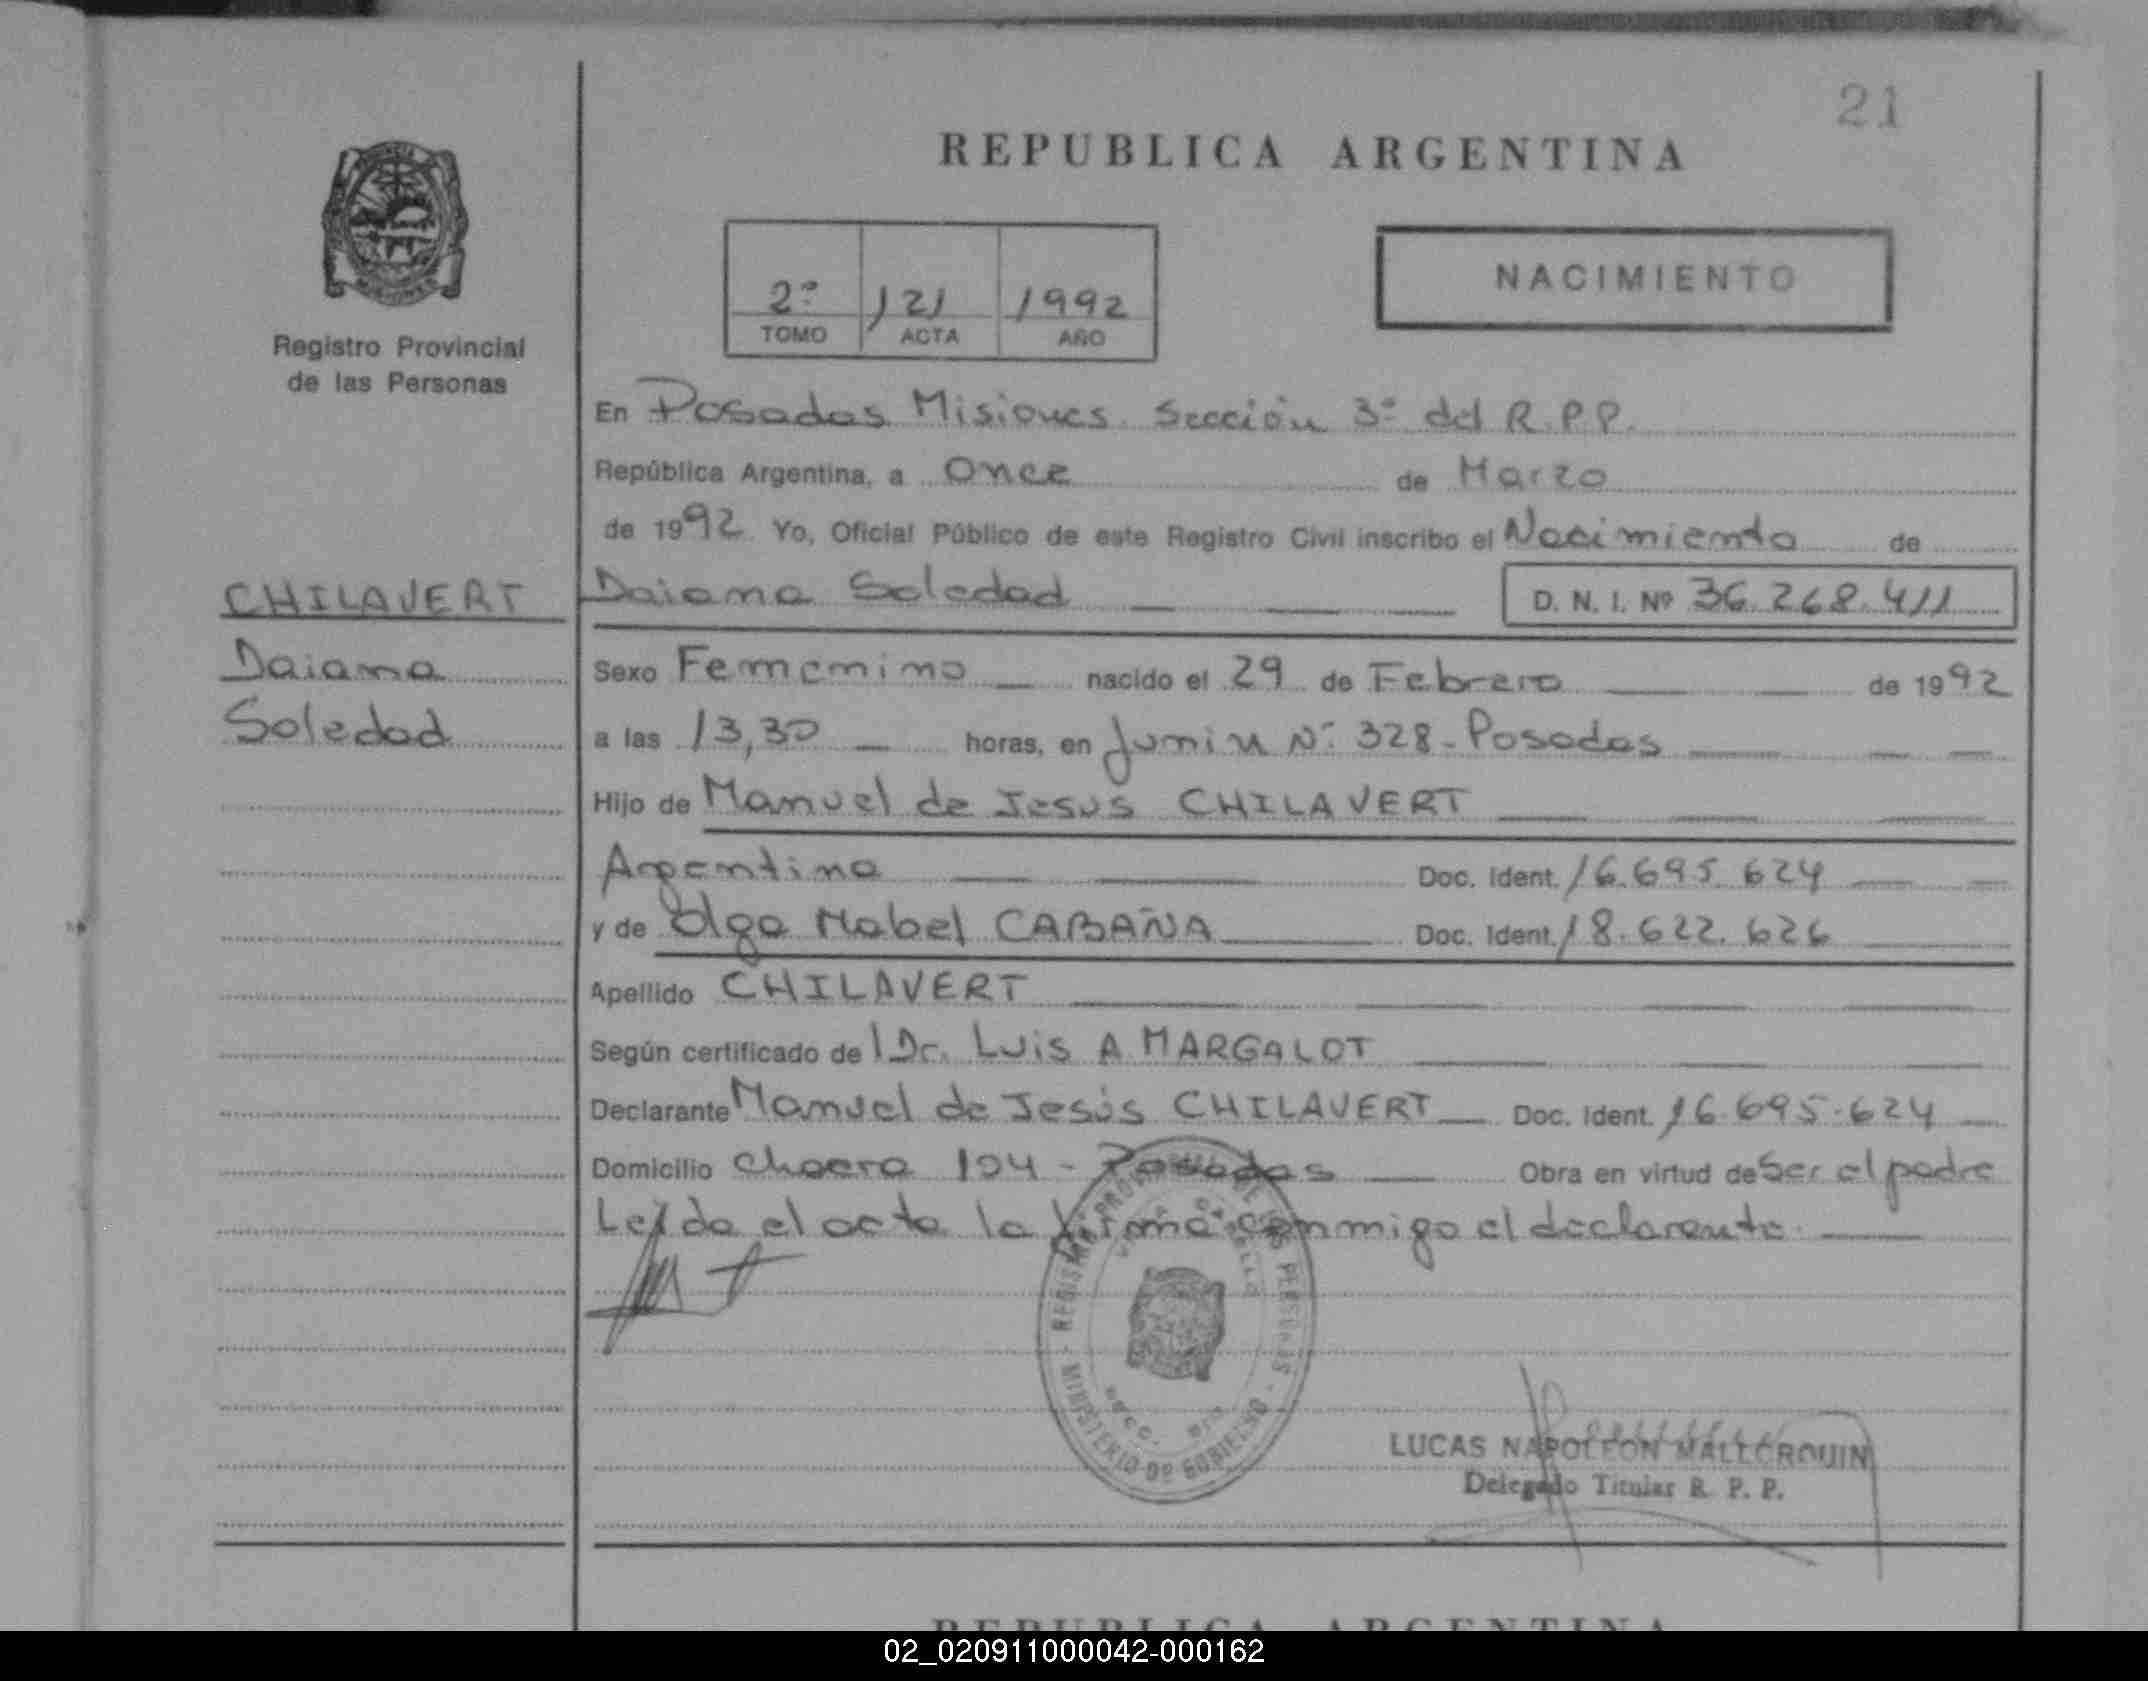 21
REPUBLICA ARGENTINA
NACIMIENTO
2º 121 1992
TOMO ACTA AÑO
Registro Provincial
de las Personas
En Posadas Misiones. Sección 3º del R.P.P.
República Argentina, a Once de Marzo
de 1992 Yo, Oficial Público de este Registro Civil inscribo el Nacimiento de
CHILAVERT
Daiana Soledad D. N. I. Nº 36.268.411
Daiana
Soledad
Sexo Femenino nacido el 29 de Febrero de 1992
a las 13,30 horas, en Junin Nº 328 - Posadas
Hijo de Manuel de Jesus CHILAVERT
Argentina Doc. Ident. 16.695.624
y de Olga Mabel CABAÑA Doc. Ident. 18.622.626
Apellido CHILAVERT
Según certificado de l Dr. Luis A MARGALOT
Declarante Manuel de Jesús CHILAVERT Doc. Ident. 16.695.624
Domicilio Chacra 104 - Posadas Obra en virtud de Ser el padre
Leída el acta la firma conmigo el declarante.
REGISTRO PROVINCIAL DE LAS PERSONAS
MINISTERIO DE GOBIERNO
LUCAS NAPOLEON MALLORQUIN
Delegado Titular R. P. P.
REPUBLICA ARGENTINA
02_020911000042-000162